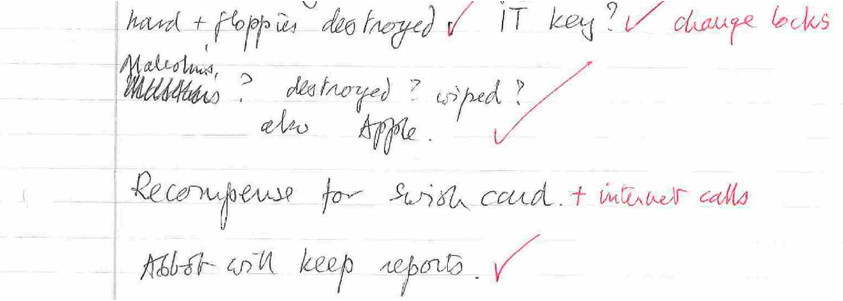 hard + floppies destroyed ✓ IT key? ✓ change locks
Malcolm's,
? destroyed? wiped?
also Apple. ✓
Recompense for Swish card. + internet calls
Abbot will keep reports. ✓